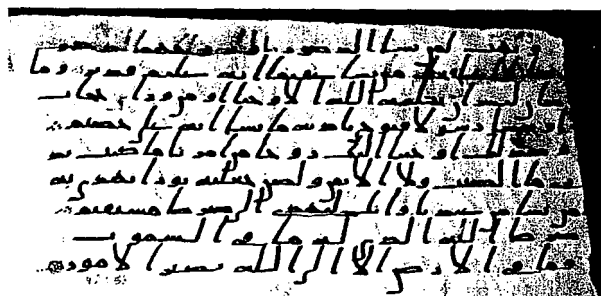 ويهب لمن يشا الذكور او يزوجهم
ويجعل من يشا عقيما انه عليم قدير وما
كان لبشر ان يكلمه الله الا وحيا او من ورا حجاب
او يرسل رسولا فيوحي باذنه ما يشا انه علي حكيم
وكذلك اوحينا اليك روحا من امرنا ما كنت تد
ري ما الكتب ولا الايمن ولكن جعلنه نورا نهدي به
من نشا من عبدنا وانك لتهدي الى صرط مستقيم
صرط الله الذي له ما في السموت
وما في الارض الا الى الله تصير الامور